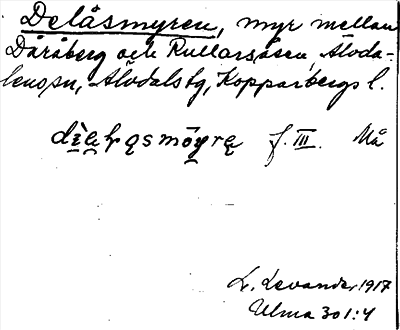 Delåsmyren, myr mellan
Dåråberg och Rullarsåsen, Älvda-
lens sn, Älvdalstg, Kopparbergs l.
f. III. Må
L. Levander 1917
Ulma 301:4